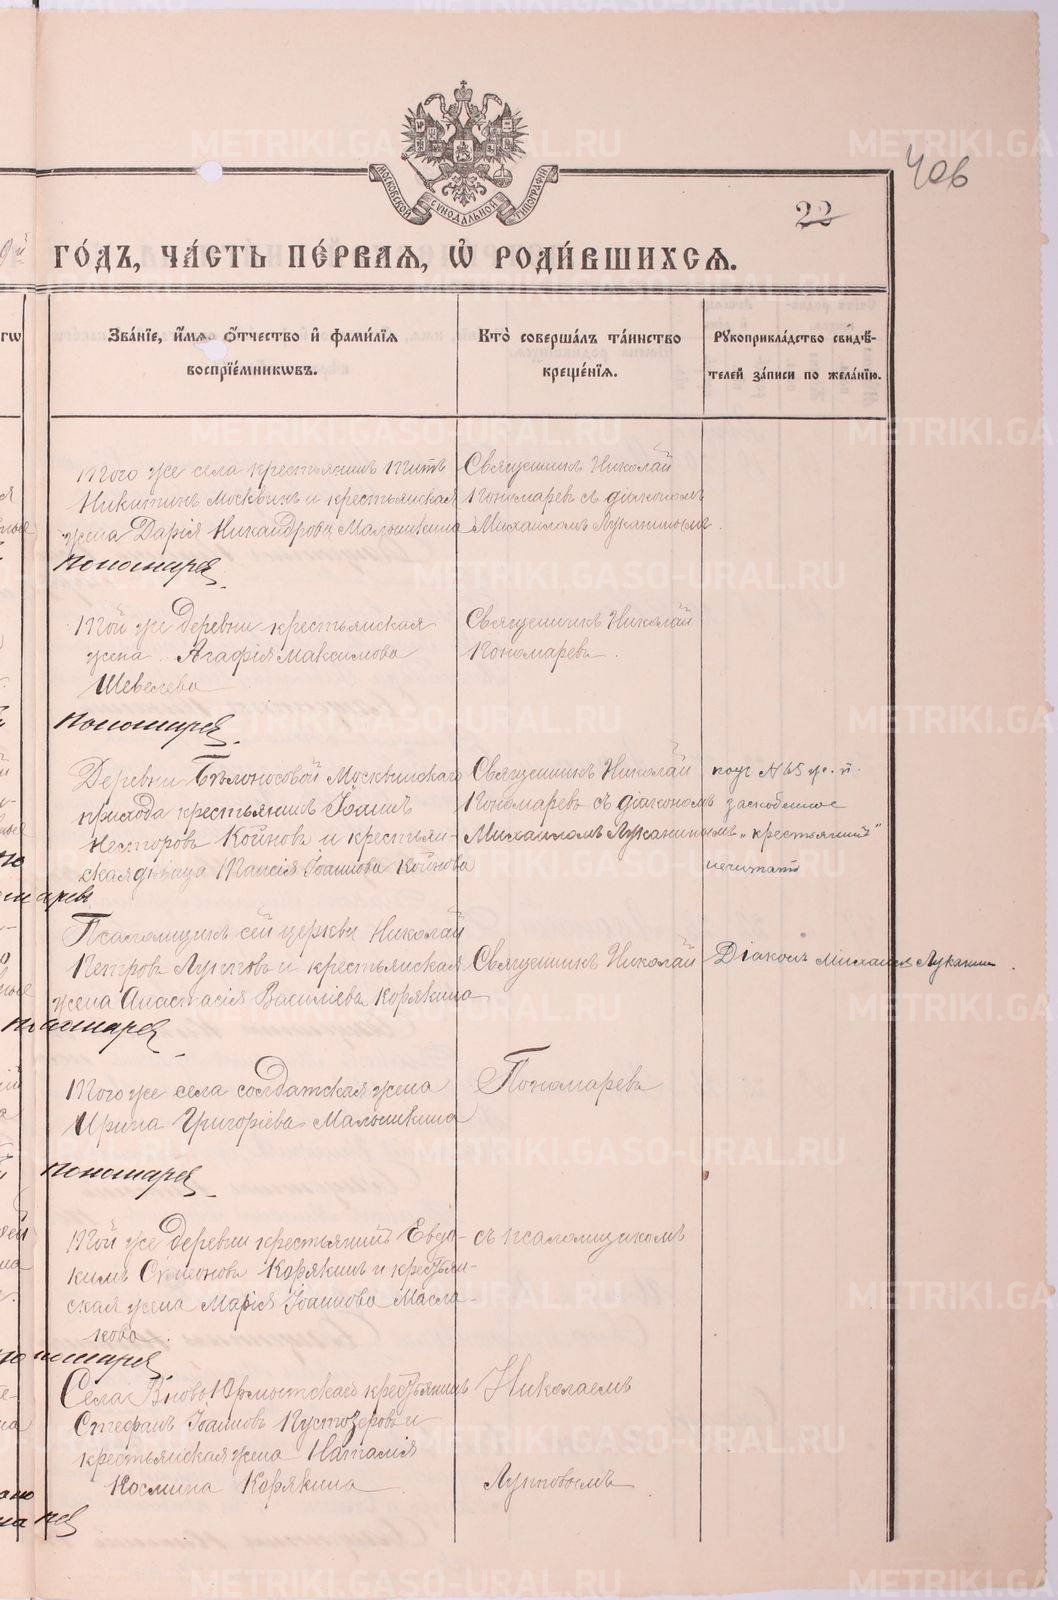 МОСКОВСКОЙ СѴНОДАЛЬНОЙ ТИПОГРАФІИ
406
22
ГО́ДЪ, ЧА́СТЬ ПЕ́РВАѦ, Ѡ҆ РОДИ́ВШИХСѦ.
Зва́нїе, и҆́мѧ ѻ҆́тчество и҆ фами́лїѧ воспрїе́мникѡвъ.
Кто̀ соверша́лъ та́инство креще́нїѧ.
Рꙋкоприкла́дство свидѣ́телей за́писи по жела́нїю.
Того же села крестьянинъ Титъ
Никитинъ Москвинъ и крестьянская
жена Дарія Никандрова Малышкина
Священникъ Николай
Пономаревъ съ діакономъ
Михаиломъ Луканинымъ.
Пономарев
Той же деревни крестьянская
жена Агафія Максимова
Шевелева
Священникъ Николай
Пономаревъ.
Пономарев
Деревни Бѣлоносовой Москвинскаго
прихода крестьянинъ Іоаннъ
Несторовъ Койновъ и крестьян-
ская дѣвица Таисія Іоаннова Койнова
Священникъ Николай
Пономаревъ съ діакономъ
Михаиломъ Луканинымъ
под № 45 ж. п.
заскобленное
"крестьянинъ"
читать
Псаломщикъ сей церкви Николай
Петровъ Луповъ и крестьянская
жена Анастасія Василіева Корякина
Священникъ Николай
Діаконъ Михаилъ Луканин.
Пономарев
Того же села солдатская жена
Ирина Григоріева Малышкина
Пономаревъ
Пономарев
Той же деревни крестьянинъ Евдо-
кимъ Симеоновъ Корякинъ и крестьян-
ская жена Марія Іоаннова Масла-
кова.
съ псаломщикомъ
Села крестьянинъ
Стефанъ Іоанновъ Пустозеровъ и
крестьянская жена Наталія
Космина Корякина
Николаемъ
Луповымъ